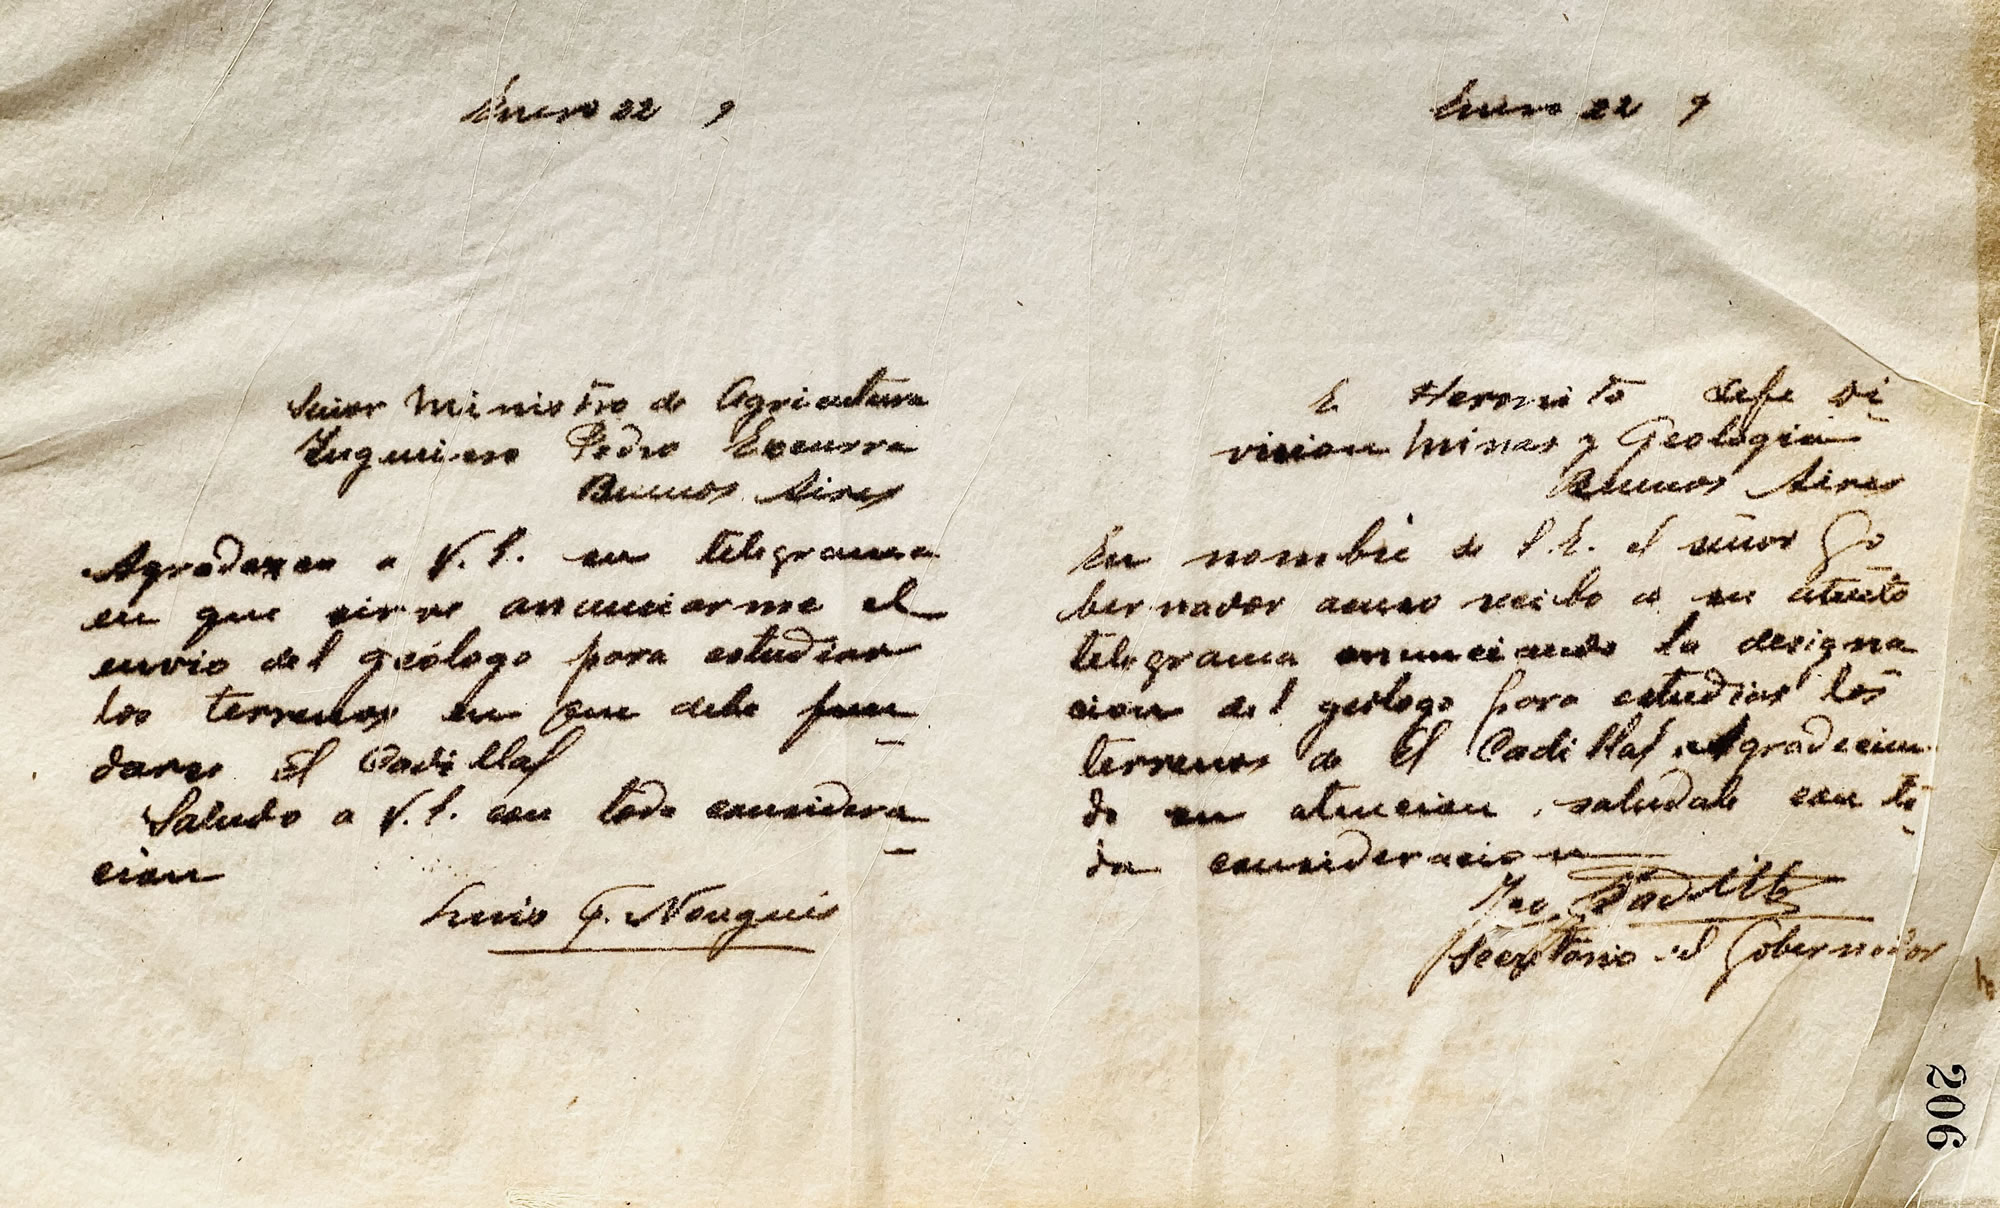 Enero 22 9
Señor Ministro de Agricultura
Ingeniero Pedro Escurra
Buenos Aires
Agradezco a V.E. su telegrama
en que sirve anunciarme el
envio del geólogo para estudiar
los terrenos en que debe fun
darse El Cadillal
Saludo a V.E. con toda considera
cion
Luis F. Nougués
Enero 22 9
E Hermite Jefe Di
vision Minas y Geologia
Buenos Aires
En nombre de S.E. el señor Go
bernador acuso recibo a su atento
telegrama anunciando la designa
cion del geólogo para estudiar los
terrenos de El Cadillal. Agradecien
do su atencion, saludale con to
da consideracion
Padilla
Secretario del Gobernador
206